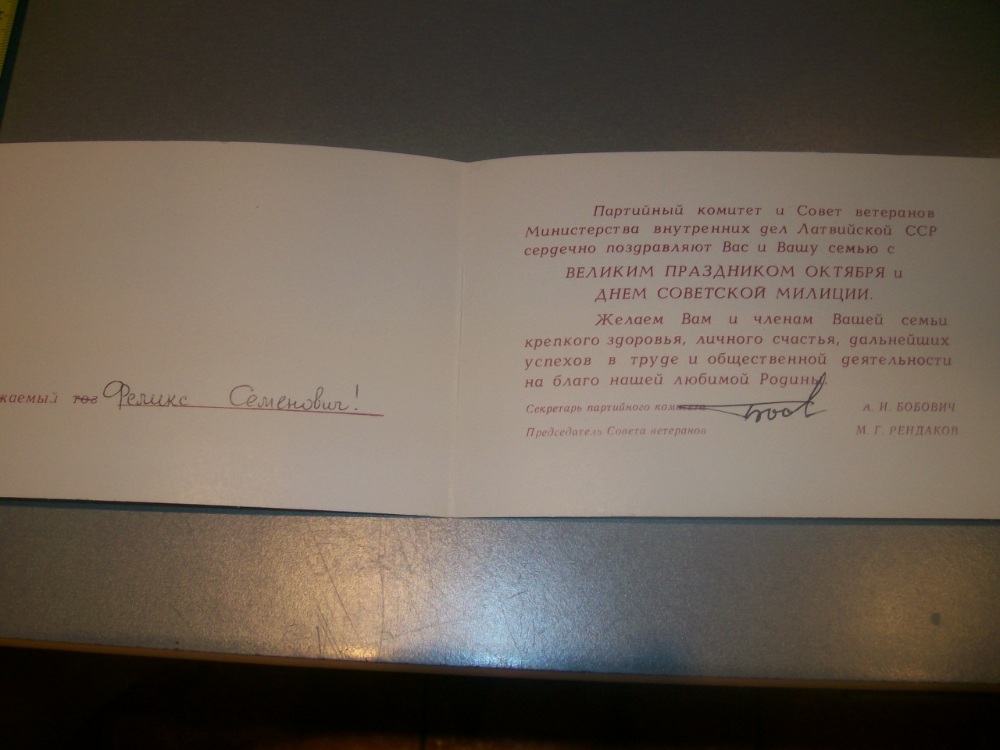 жаемый тов Феликс Семенович!
Партийный комитет и Совет ветеранов
Министерства внутренних дел Латвийской ССР
сердечно поздравляют Вас и Вашу семью с
ВЕЛИКИМ ПРАЗДНИКОМ ОКТЯБРЯ и
ДНЕМ СОВЕТСКОЙ МИЛИЦИИ.
Желаем Вам и членам Вашей семьи
крепкого здоровья, личного счастья, дальнейших
успехов в труде и общественной деятельности
на благо нашей любимой Родины.
Секретарь партийного комитета А. И. БОБОВИЧ
Председатель Совета ветеранов М. Г. РЕНДАКОВ